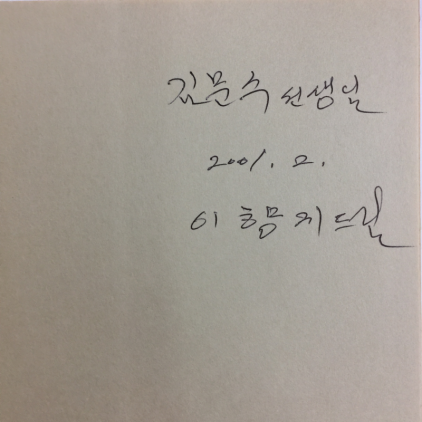 김문수 선생님
2001. 2.
이 드림